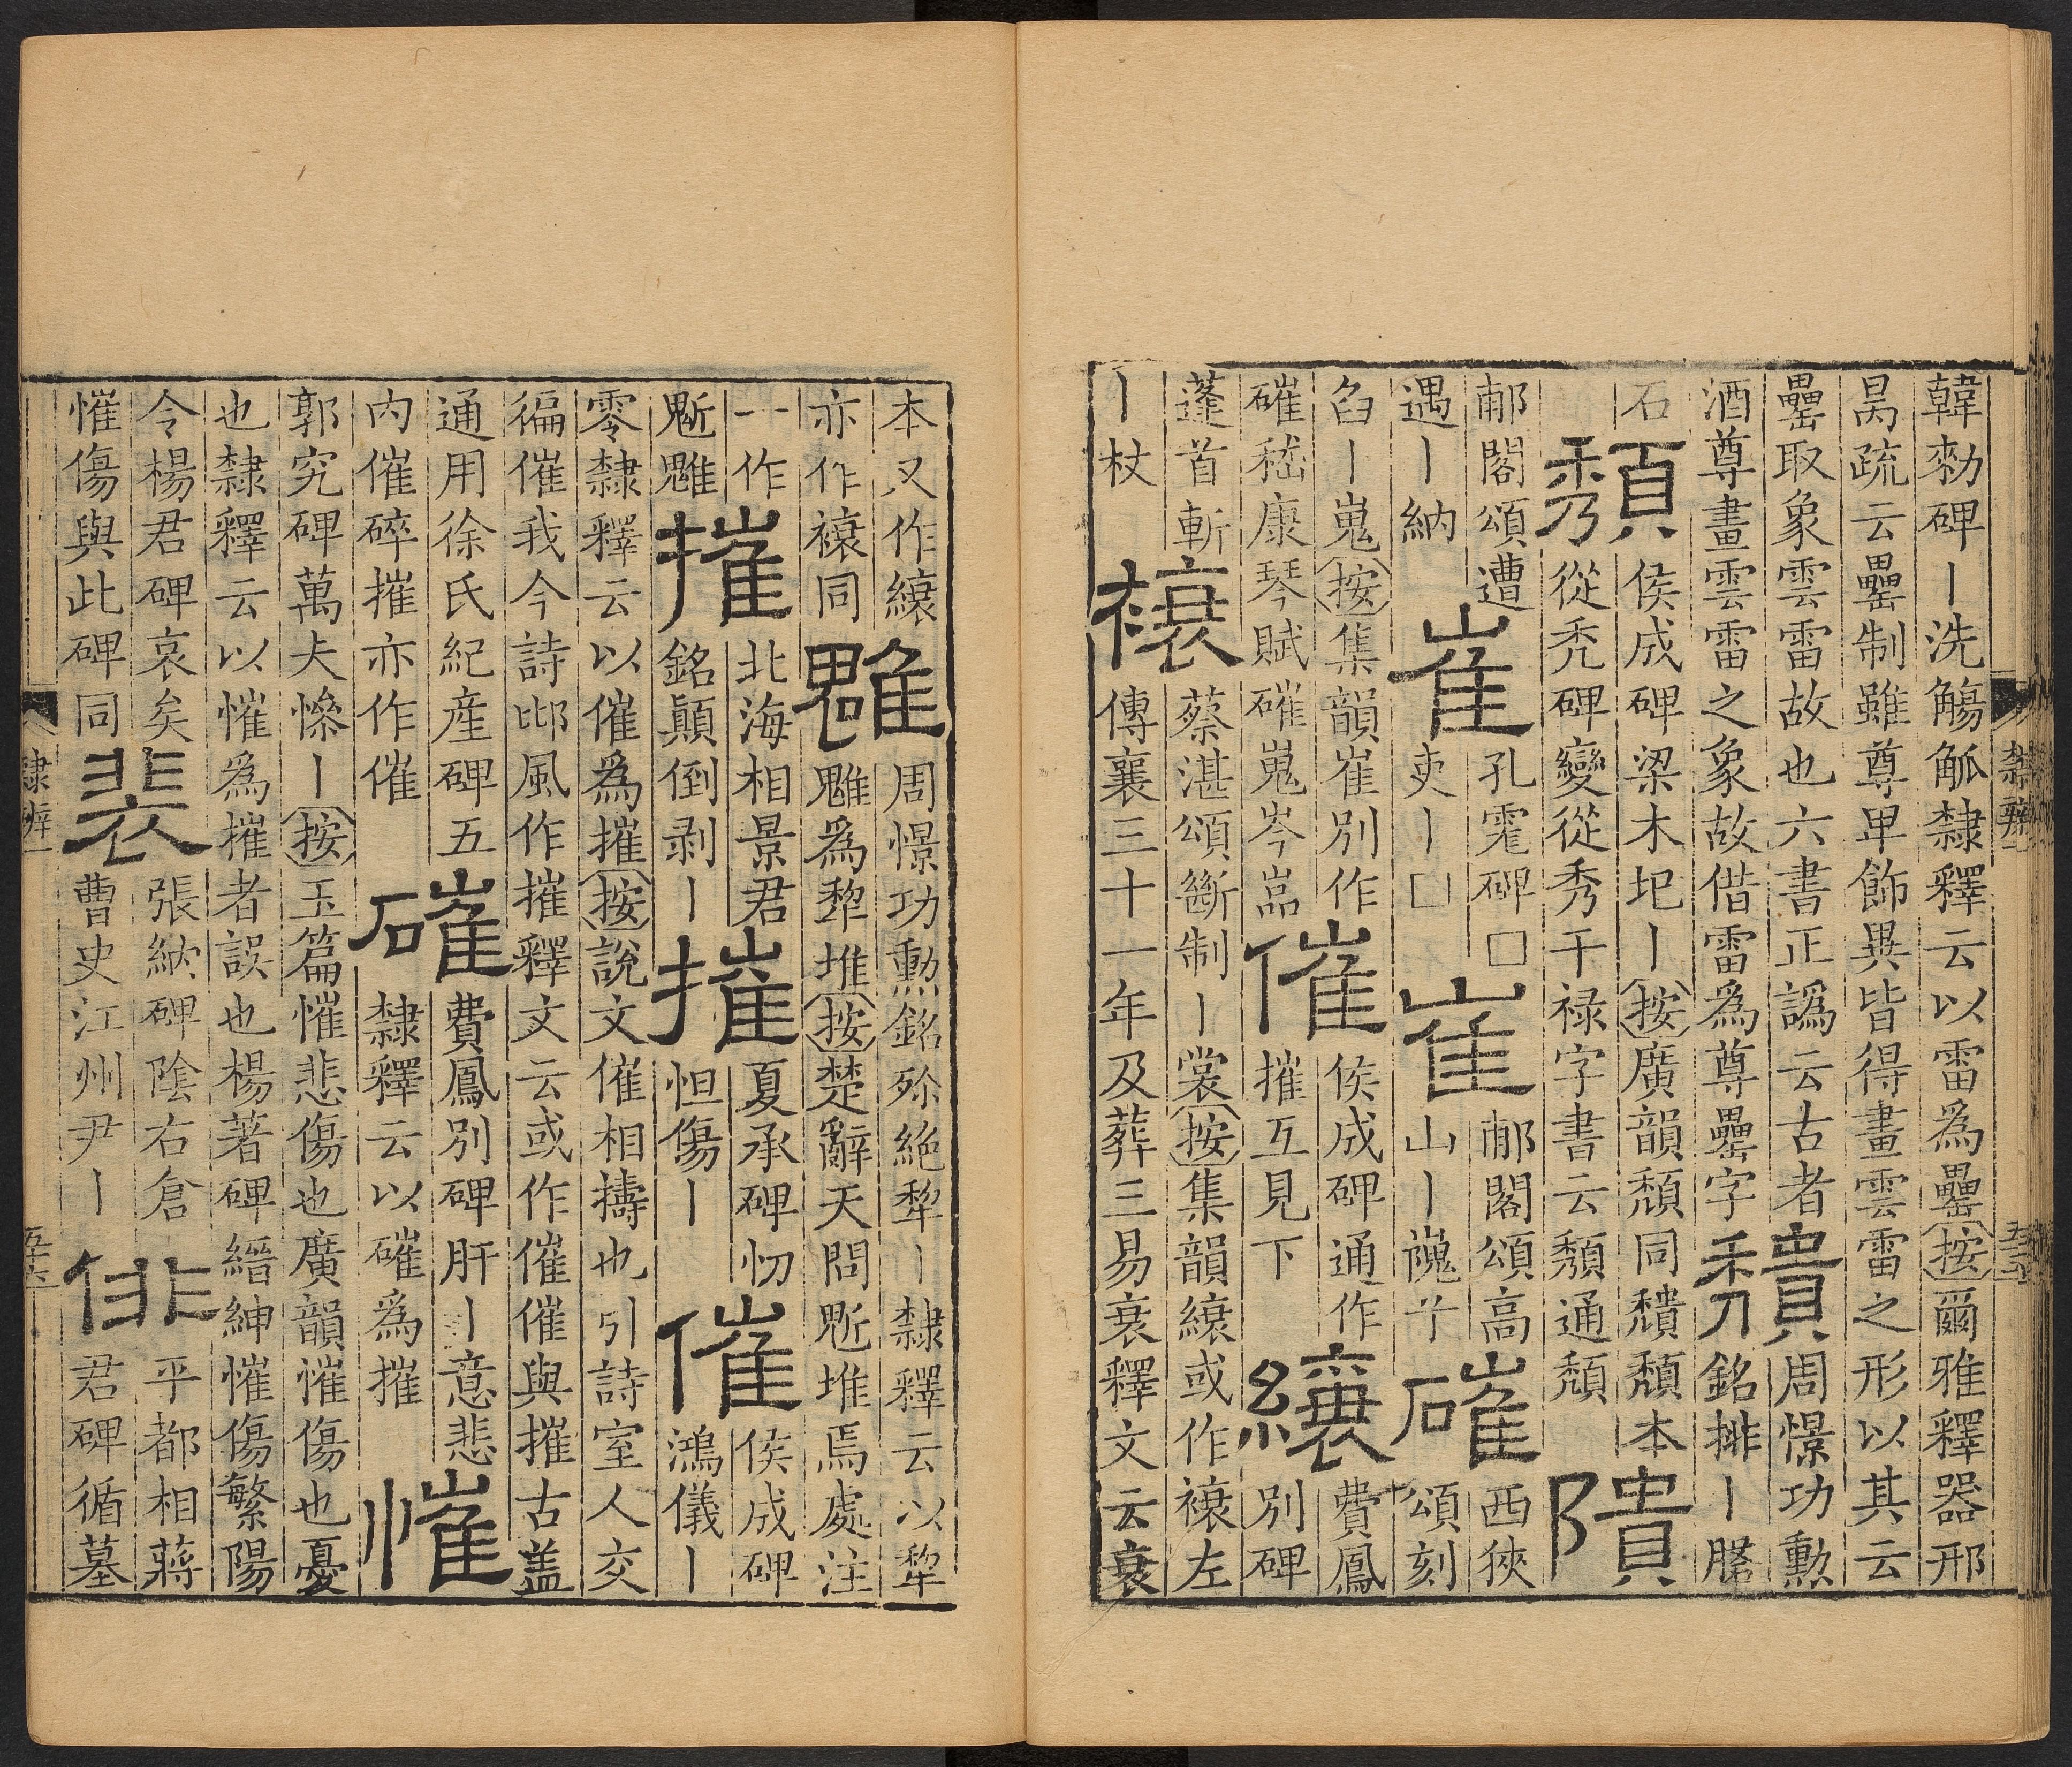 韓勑碑丨洗觴觚隸釋云以雷為罍按爾雅釋器邢
昺疏云罍制雖尊卑飾異皆得畫雲雷之形以其云
罍取象雲雷故也六書正譌云古者
酒尊畫雲雷之象故借雷為尊罍字
穨
周憬功勳
銘排丨
石
頹
侯成碑梁木圯丨按廣韻頹同穨頹本
從禿碑變從秀干禄字書云頽通頹
隤
郙閣頌遭
遇丨納
崔
孔霐碑□
吏丨□
崔
郙閣頌高
山丨巍兮
磪
西狹
頌刻
臽丨嵬按集韻崔別作
磪嵇康琴賦磪嵬岑嵓
催
侯成碑通作
摧互見下
縗
費鳳
別碑
蓬首斬
丨杖
𧜗
蔡湛頌斷制丨裳按集韻縗或作𧜗左
傳襄三十一年及葬三易衰釋文云衰
本又作縗
亦作𧜗同
魋
周憬功勳銘殄絶犁丨隸釋云以犂
魋為犂堆按楚辭天問鬿堆焉處注
一作
鬿魋
摧
北海相景君
銘顛倒剥丨
摧
夏承碑忉
怛傷丨
催
侯成碑
鴻儀丨
零隸釋云以催為摧按說文催相擣也引詩室人交
徧催我今詩邶風作摧釋文云或作催催與摧古盖
通用徐氏紀産碑五
内催碎摧亦作催
磪
費鳳別碑肝丨意悲
隸釋云以磪為摧
慛
郭究碑萬夫慘丨按玉篇慛悲傷也廣韻慛傷也憂
也隸釋云以慛為摧者誤也楊著碑縉紳慛傷繁陽
令楊君碑哀矣
慛傷與此碑同
裴
張納碑陰右倉
曹史江州尹丨
俳
平都相蔣
君碑循墓
隸辨一
五十六